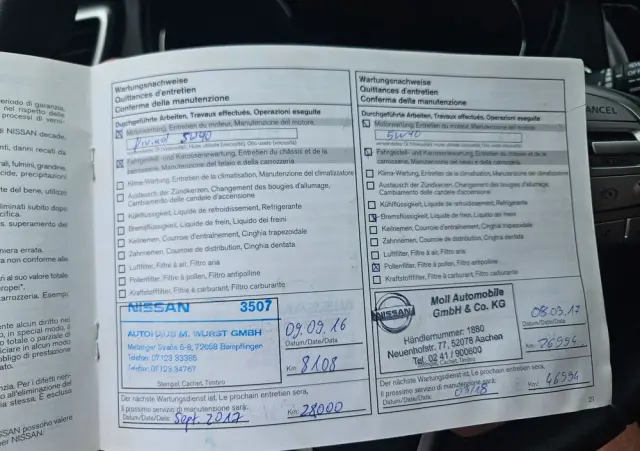 periodo di garanzia,
nel rispetto delle
processi di versi-
NISSAN decade,
danni recati da
rali, fulmini, grandine,
cide, precipitazioni
te del bene, utilizzo
eliminati subito dopo
cifica.
s. superamento dei
niera errata.
ra non conforme alle
ri al suo valore totale
ropei".
carrozzeria. Esempi:
nte alcun diritto nel
o, in special modo, il
totale o parziale di
inciare in alcun modo
bbligo di prestazione
ato.
nzia. Per i difetti
o all'eliminazione del
a stessa. È esclusa
SAN possono valere
er NISSAN.
Wartungsnachweise
Quittances d'entretien
Conferma della manutenzione
Durchgeführte Arbeiten, Travaux effectués, Operazioni eseguite
Motorwartung, Entretien du moteur, Manutenzione del motore
5W40
Fahrgestell- und Karosseriewartung, Entretien du châssis et de la
carrosserie, Manutenzione del telaio e della carrozzeria
Klima-Wartung, Entretien de la climatisation, Manutenzione del climatizzatore
Austausch der Zündkerzen, Changement des bougies d'allumage,
Cambiamento delle candele d'accensione
Kühlflüssigkeit, Liquide de refroidissement, Refrigerante
Bremsflüssigkeit, Liquide de frein, Liquido dei freni
Keilriemen, Courroie d'entraînement, Cinghia trapezoidale
Zahnriemen, Courroie de distribution, Cinghia dentata
Luftfilter, Filtre à air, Filtro aria
Pollenfilter, Filtre à pollen, Filtro antipolline
Kraftstoffilter, Filtre à carburant, Filtro carburante
NISSAN 3507
AUTOHAUS M. WURST GMBH
Metzinger Straße 6-8, 72658 Bempflingen
Telefon: 07123 33385
Telefax: 07123 34767
Stempel, Cachet, Timbro
09.09.16
Datum/Date/Data:
Km: 8108
Der nächste Wartungsdienst ist, Le prochain entretien sera,
Il prossimo servizio di manutenzione sarà:
Datum/Date/Data: Sept. 2017 Km: 28000
Wartungsnachweise
Quittances d'entretien
Conferma della manutenzione
Durchgeführte Arbeiten, Travaux effectués, Operazioni eseguite
Motorwartung, Entretien du moteur, Manutenzione del motore
5W40
Fahrgestell- und Karosseriewartung, Entretien du châssis et de la
carrosserie, Manutenzione del telaio e della carrozzeria
Klima-Wartung, Entretien de la climatisation, Manutenzione del climatizzatore
Austausch der Zündkerzen, Changement des bougies d'allumage,
Cambiamento delle candele d'accensione
Kühlflüssigkeit, Liquide de refroidissement, Refrigerante
Bremsflüssigkeit, Liquide de frein, Liquido dei freni
Keilriemen, Courroie d'entraînement, Cinghia trapezoidale
Zahnriemen, Courroie de distribution, Cinghia dentata
Luftfilter, Filtre à air, Filtro aria
Pollenfilter, Filtre à pollen, Filtro antipolline
Kraftstoffilter, Filtre à carburant, Filtro carburante
NISSAN
Moll Automobile
GmbH & Co. KG
Händlernummer: 1880
Neuenhofstr. 77, 52078 Aachen
Tel. 02 41 / 900600
Stempel, Cachet, Timbro
08.03.17
Datum/Date/Data:
Km: 26994
Der nächste Wartungsdienst ist, Le prochain entretien sera,
Il prossimo servizio di manutenzione sarà:
Datum/Date/Data: 03/18 Km: 46994
21
CANCEL